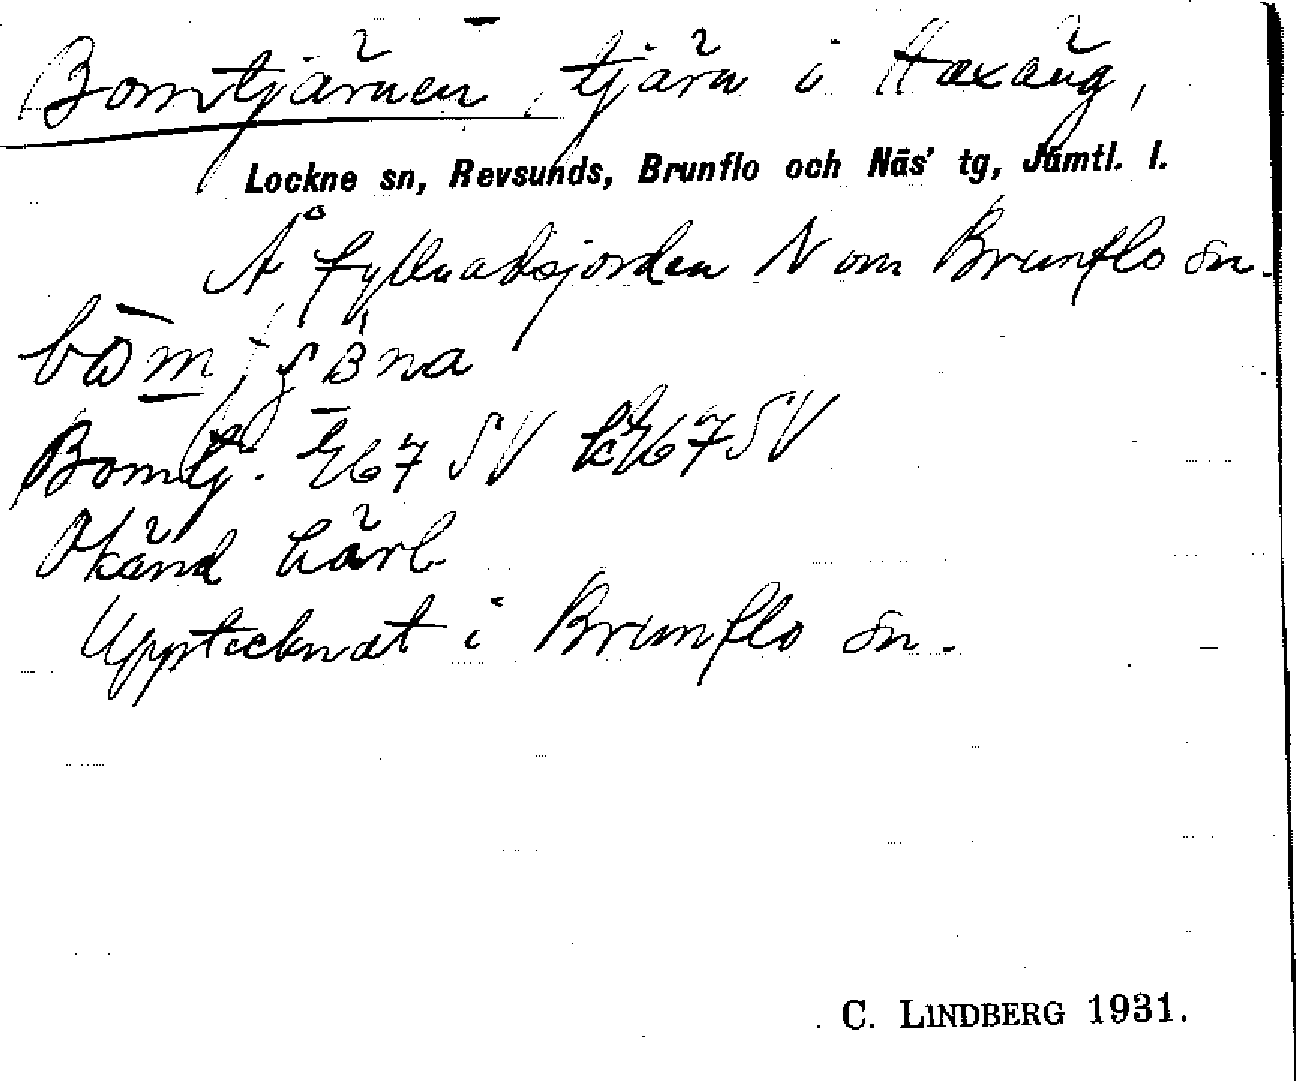 Bomtjärnen, tjärn i Haxäng,
Lockne sn, Revsunds, Brunflo och Näs' tg, Jämtl. l.
Å fyllnadsjorden N om Brunflo sn.
Bomtj. E67 SV
Okänd härl.
Upptecknat i Brunflo sn.
C. LINDBERG 1931.